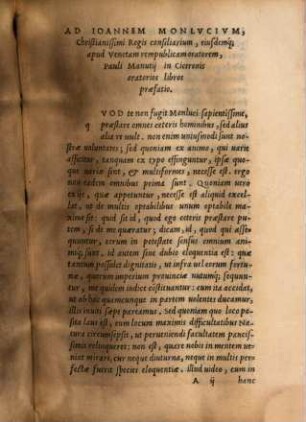 AD IOANNEM MONLVCIVM,
Christianissimi Regis consiliarium, eiusdemq;
apud Venetam rempublicam oratorem,
Pauli Manutij in Ciceronis
oratorios libros
præfatio.
VOD te non fugit Monluci sapientissime,
q præstare omnes ceteris hominibus, sed alius
alia re uult. non enim uniusmodi sunt no-
stræ uoluntates; sed quoniam ex animo, qui uarie
afficitur, tanquam ex typo effinguntur, ipsæ quo-
que uariæ sint, & multiformes, necesse est. ergo
non eadem omnibus prima sunt. Quoniam uero
ex ijs, quæ appetuntur, necesse est aliquid excel-
lat, ut de multis optabilibus unum optabile ma-
xime sit: quid sit id, quo ego ceteris præstare pu-
tem, si de me quæratur; dicam, id, quod qui asse-
quuntur, eorum in potestate sensus omnium ani-
miq; sunt. id autem sine dubio eloquentia est: quæ
tamen possessi dignitatis, ut infra uel eorum fortu-
næ, quorum imperium prouinciæ nutumq; sequun-
tur, me quidem iudice existituantur: cum ita accidat,
ut ab his quamcunque in partem uolentes ducamur,
illis inuiti sæpe pareamus. Sed quoniam quo loco po-
sita laus est, eum locum maximis difficultatibus na-
tura circumsepsit, ut perueniendi facultatem paucis-
simis relinqueret: non est, quare nobis in mentem ue-
niat mirari, cur neque diuturna, neque in multis per-
fecta fuerit species eloquentiæ. illud uideo, cum in
A ij hanc